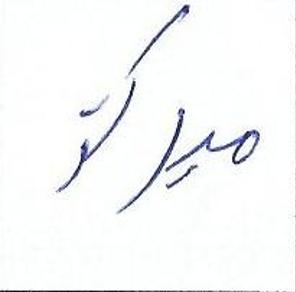 میر کو